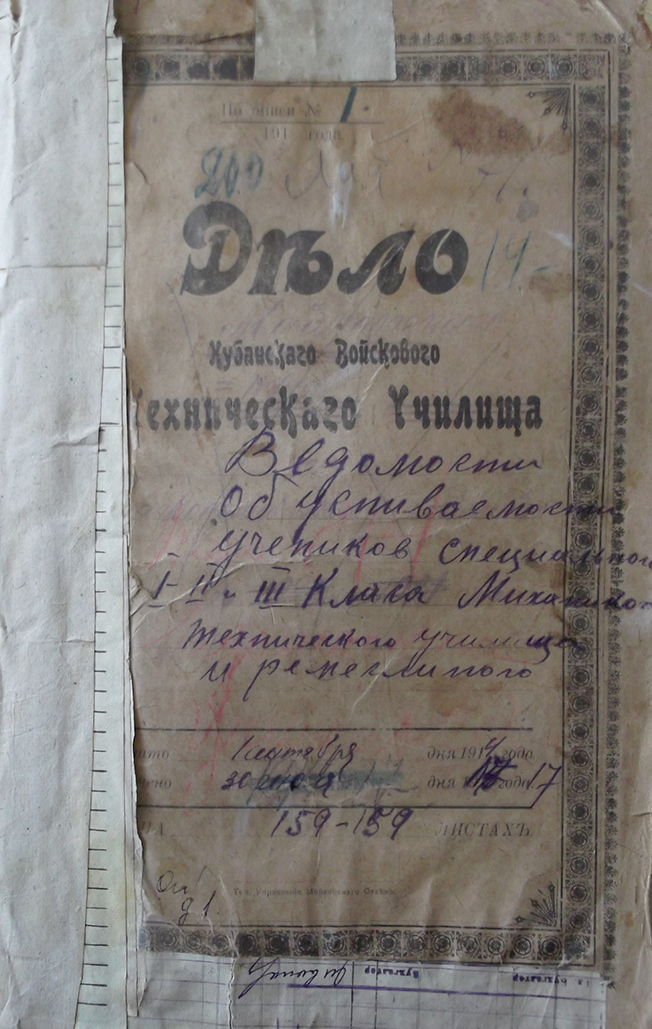 По описи № 1.
191 года
200
Дѣло
19-
Кубанскаго Войскового
ехническаго Училища
Ведомости
Об успиваемости
учеников специального
I - II и III Класа Миханико
технического училища
и ремеслиного
ато 1 сентября дня 1914 года
чено 30 июня дня года 17
НА 159-159 ЛИСТАХЪ.
Оп
д 1.
Тип. Управления Майкопского Отдела